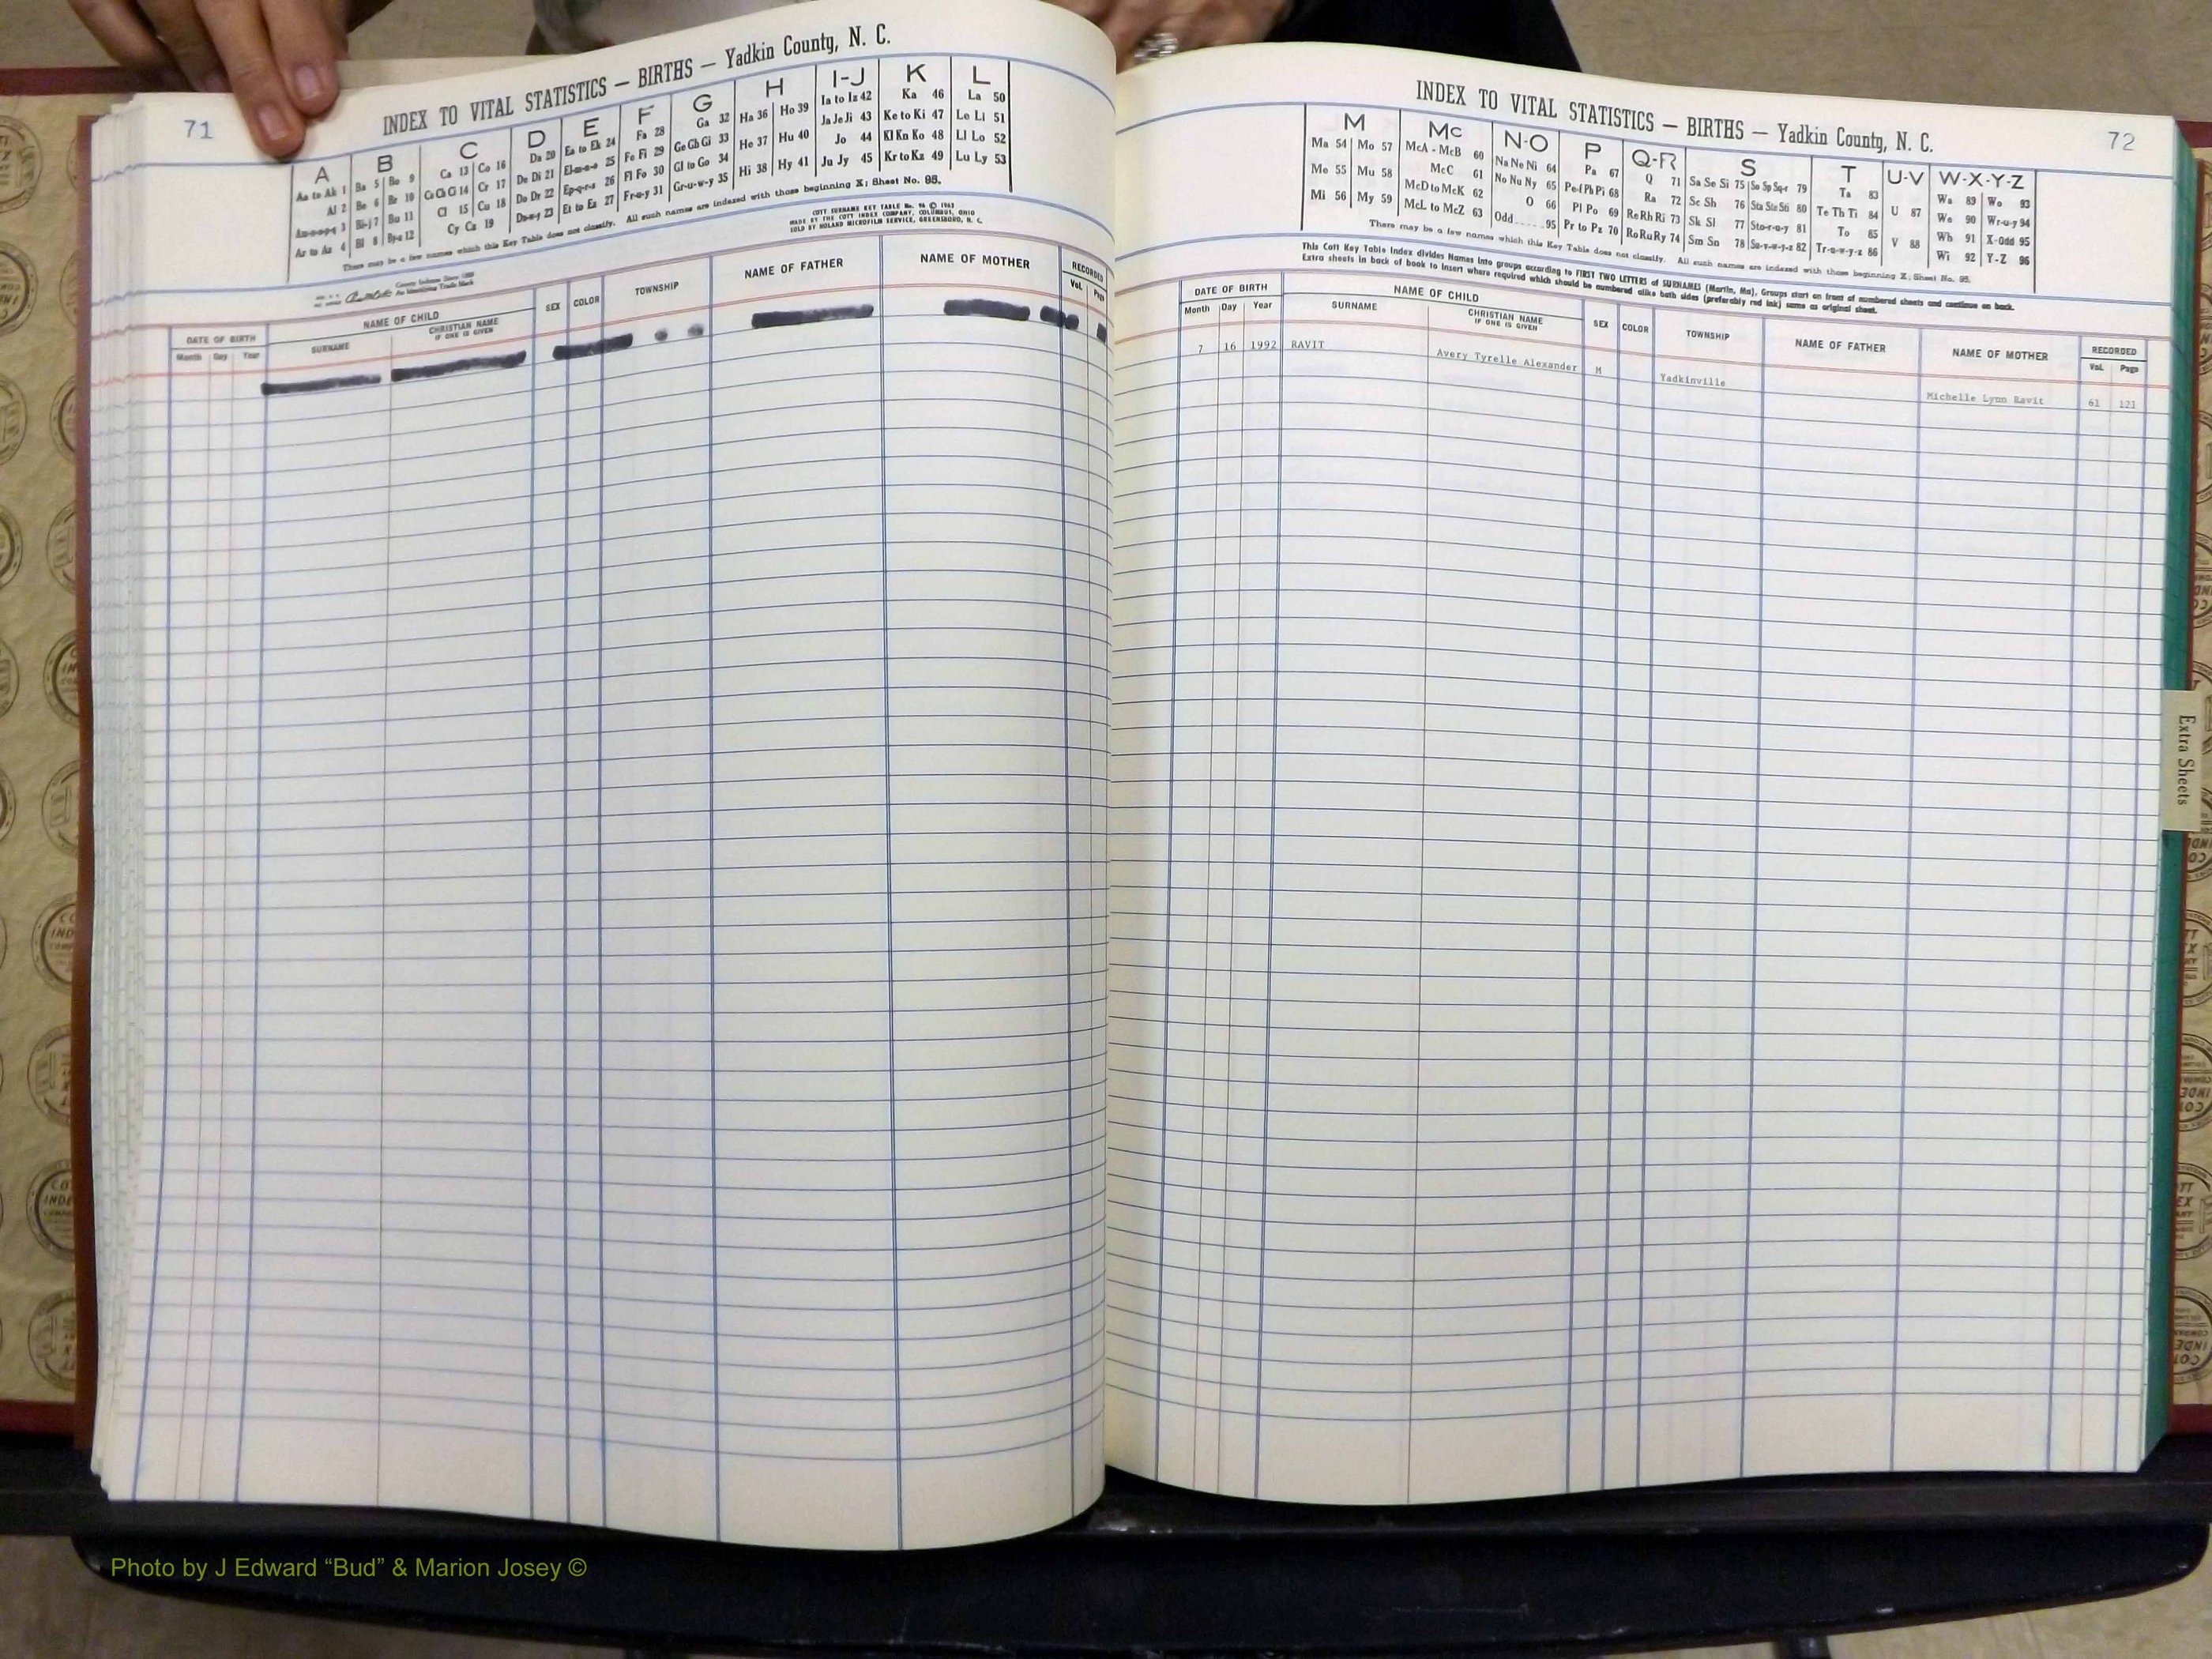 71
INDEX TO VITAL STATISTICS — BIRTHS — Yadkin County, N. C.
A B C D E F G H I-J K L
Aa to Ak 1 Ba 5 Bo 9 Ca 13 Co 16 Da 20 Ea to Ek 24 Fa 28 Ga 32 Ha 36 Ho 39 Ia to Iz 42 Ka 46 La 50
Al 2 Be 6 Br 10 Ce Ch Ci 14 Cr 17 De Di 21 El-m-n-o 25 Fe Fi 29 Ge Gh Gi 33 He 37 Hu 40 Ja Je Ji 43 Ke to Ki 47 Le Li 51
Am-n-o-p-q 3 Bi-j 7 Bu 11 Cl 15 Cu 18 Do Dr 22 Ep-q-r-s 26 Fl Fo 30 Gl to Go 34 Hi 38 Hy 41 Jo 44 Kl Kn Ko 48 Ll Lo 52
Ar to Az 4 Bl 8 By-z 12 Cy Cz 19 Du-w-y 23 Et to Ez 27 Fr-u-y 31 Gr-u-w-y 35 Ju Jy 45 Kr to Kz 49 Lu Ly 53
There may be a few names which this Key Table does not classify. All such names are indexed with those beginning X; Sheet No. 95.
COTT SURNAME KEY TABLE No. 96 © 1963
MADE BY THE COTT INDEX COMPANY, COLUMBUS, OHIO
SOLD BY HOLAND MICROFILM SERVICE, GREENSBORO, N. C.
County Indexes Since 1888
An Identifying Trade Mark
DATE OF BIRTH NAME OF CHILD SEX COLOR TOWNSHIP NAME OF FATHER NAME OF MOTHER RECORDED
Month Day Year SURNAME CHRISTIAN NAME IF ONE IS GIVEN Vol. Page
72
INDEX TO VITAL STATISTICS — BIRTHS — Yadkin County, N. C.
M Mc N-O P Q-R S T U-V W-X-Y-Z
Ma 54 Mo 57 McA - McB 60 Na Ne Ni 64 Pa 67 Q 71 Sa Se Si 75 So Sp Sq-r 79 Ta 83 U 87 Wa 89 Wo 93
Me 55 Mu 58 McC 61 No Nu Ny 65 Pe-f Ph Pi 68 Ra 72 Sc Sh 76 Sta Ste Sti 80 Te Th Ti 84 V 88 We 90 Wr-u-y 94
Mi 56 My 59 McD to McK 62 O 66 Pl Po 69 Re Rh Ri 73 Sk Sl 77 Sto-r-u-y 81 To 85 Wh 91 X-Odd 95
McL to McZ 63 Odd 95 Pr to Pz 70 Ro Ru Ry 74 Sm Sn 78 Su-v-w-y-z 82 Tr-u-w-y-z 86 Wi 92 Y-Z 96
There may be a few names which this Key Table does not classify. All such names are indexed with those beginning X; Sheet No. 95.
This Cott Key Table Index divides Names into groups according to FIRST TWO LETTERS of SURNAMES (Martin, Ma), Groups start on front of numbered sheets and continue on back.
Extra sheets in back of book to insert where required which should be numbered alike both sides (preferably red ink) same as original sheet.
DATE OF BIRTH NAME OF CHILD SEX COLOR TOWNSHIP NAME OF FATHER NAME OF MOTHER RECORDED
Month Day Year SURNAME CHRISTIAN NAME IF ONE IS GIVEN Vol. Page
7 16 1992 RAVIT Avery Tyrelle Alexander M Yadkinville Michelle Lynn Ravit 61 121
Extra Sheets
Photo by J Edward “Bud” & Marion Josey ©